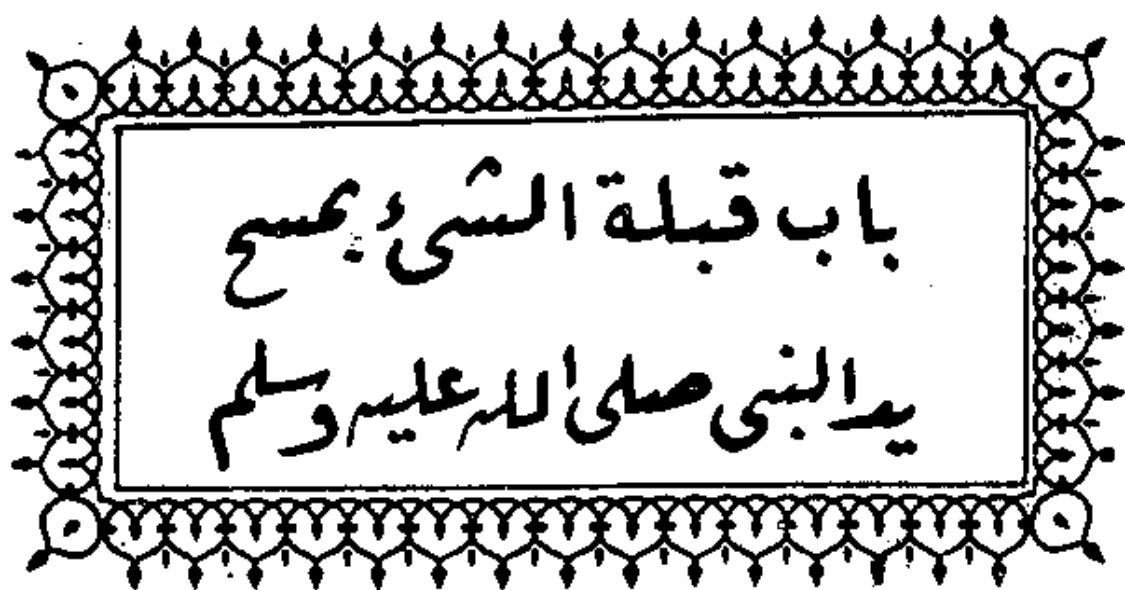 باب قبلة الشئ يمسح
يد النبى صلى الله عليه وسلم